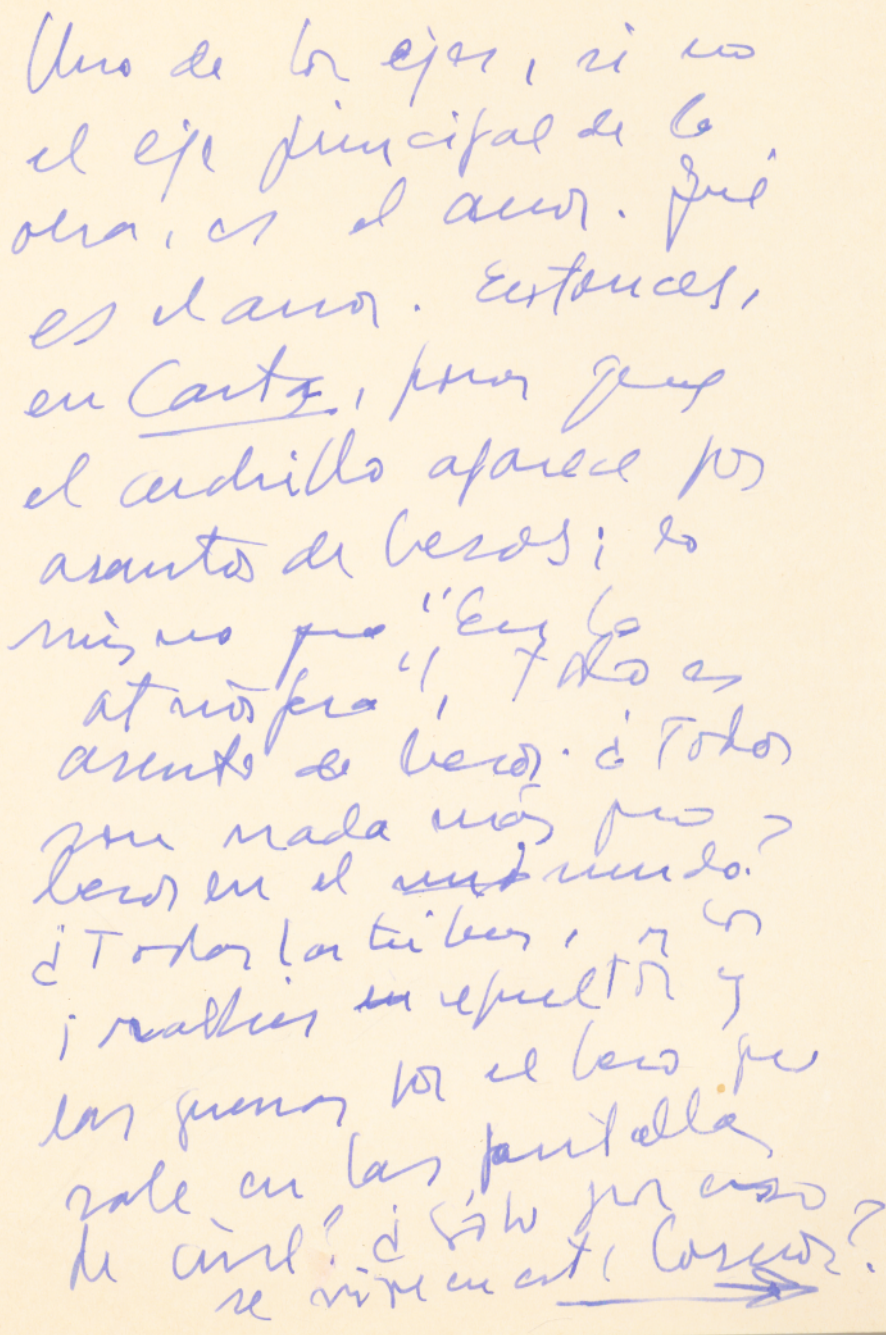 Uno de los ejes, si no
el eje principal de la
obra, es el amor. Qué
es el amor. Entonces,
en Carta, pones que
el cuchillo aparece por
asuntos de besos; lo
mismo que "En la
atmósfera", todo es
asunto de besos. ¿Todos
son nada más que
besos en el mundo?
¿Todas las tribus, los
insepultos y
las guerras por el beso que
sale en las pantallas
de cine? ¿Sólo por eso
se vive en este Cosmos?